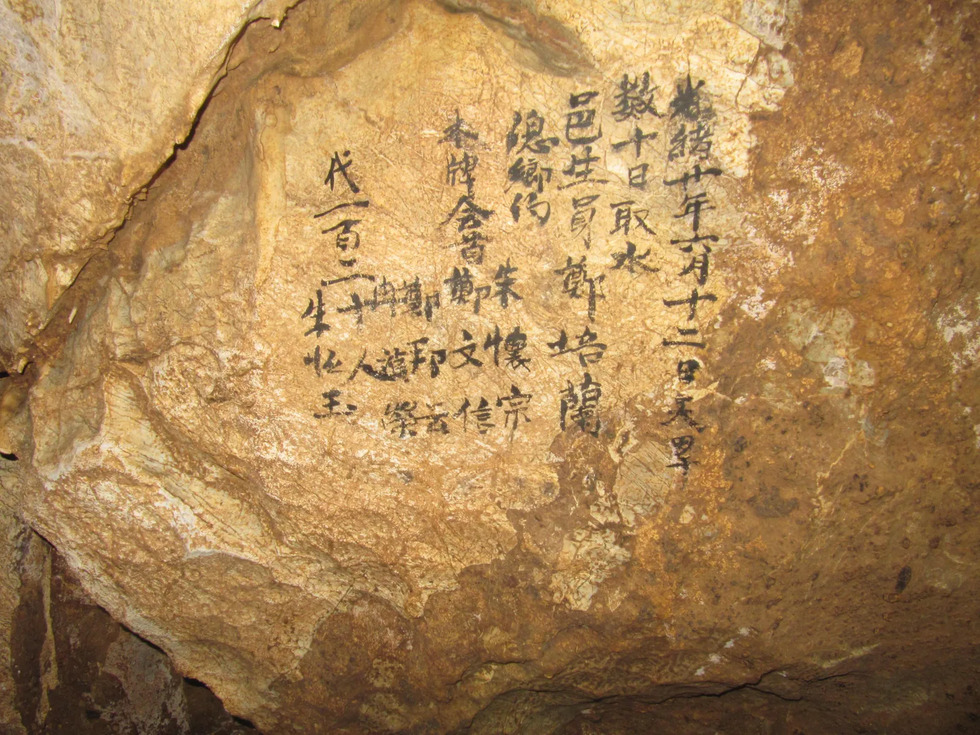 光緒廿年六月十二日天旱
數十日取水
邑生員鄭培蘭
總鄉約 朱懷宗
本牌会首鄭文信
鄭邦云
榮
代一百二十人
朱怀玉